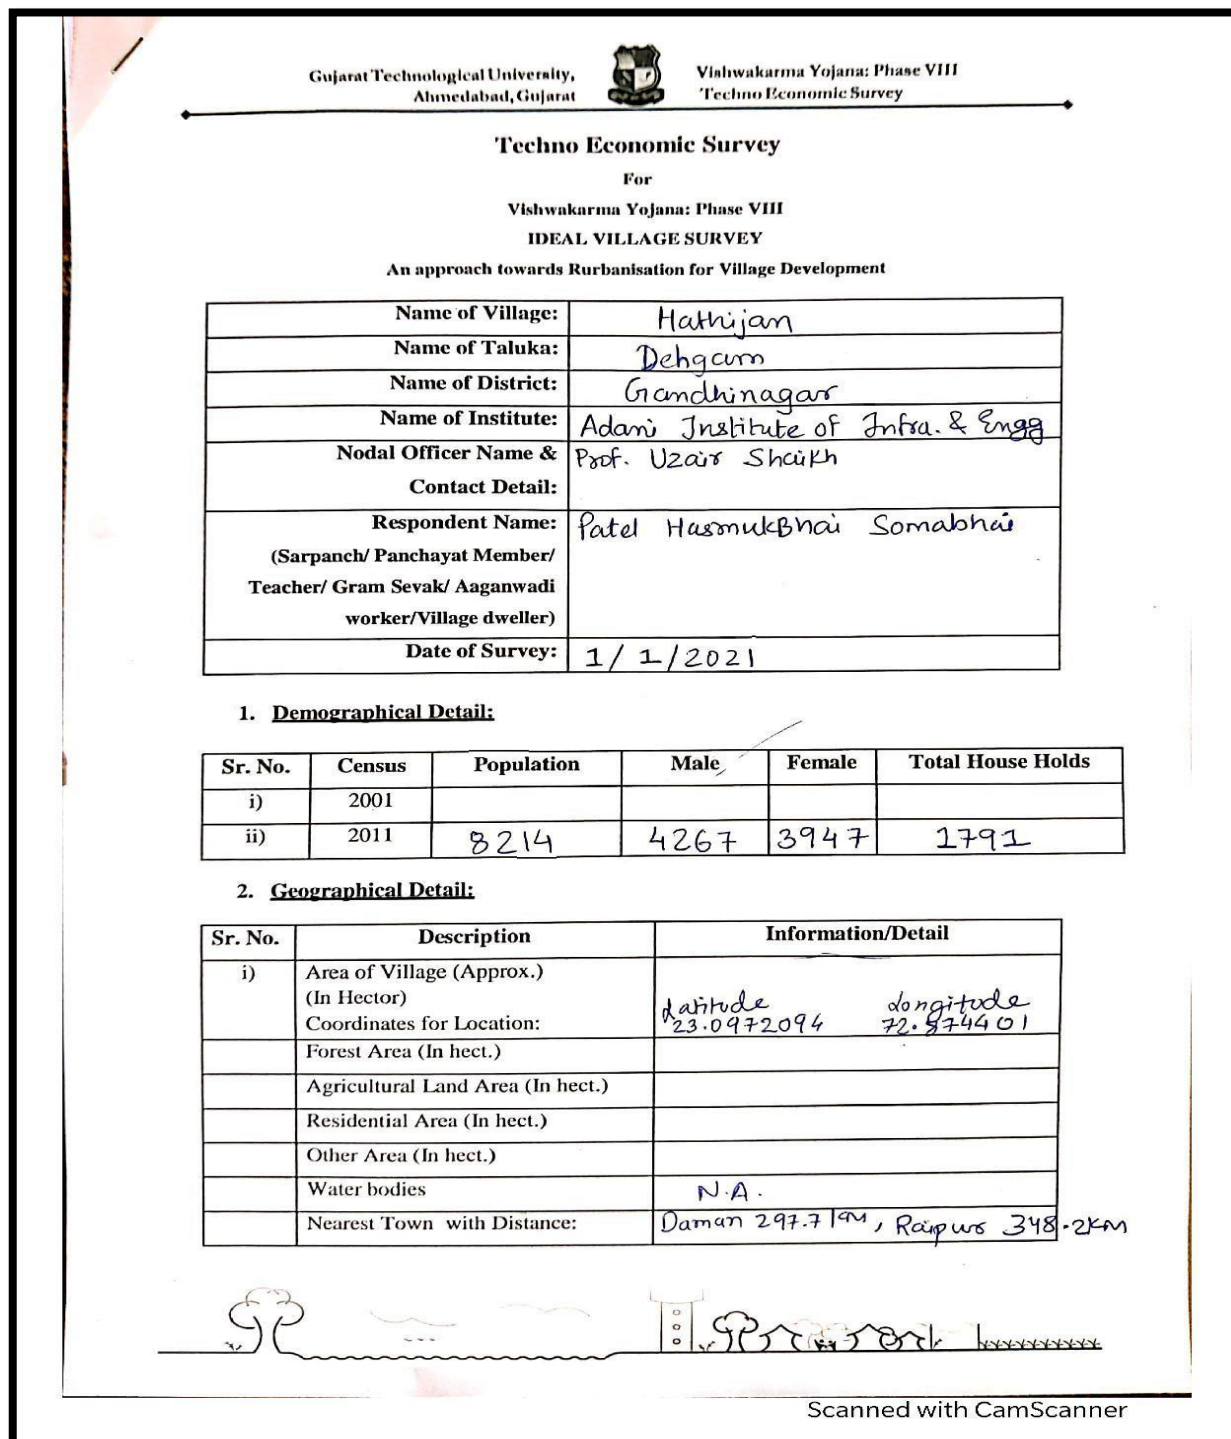 Gujarat Technological University, Vishwakarma Yojana: Phase VIII
Ahmedabad, Gujarat Techno Economic Survey
Techno Economic Survey
For
Vishwakarma Yojana: Phase VIII
IDEAL VILLAGE SURVEY
An approach towards Rurbanisation for Village Development
Name of Village: Hathijan
Name of Taluka: Dehgam
Name of District: Gandhinagar
Name of Institute: Adani Institute of Infra. & Engg
Nodal Officer Name & Prof. Uzair Shaikh
Contact Detail:
Respondent Name: Patel HasmukBhai Somabhai
(Sarpanch/ Panchayat Member/
Teacher/ Gram Sevak/ Aaganwadi
worker/Village dweller)
Date of Survey: 1/1/2021
1. Demographical Detail:
Sr. No. Census Population Male Female Total House Holds
i) 2001
ii) 2011 8214 4267 3947 1791
2. Geographical Detail:
Sr. No. Description Information/Detail
i) Area of Village (Approx.)
(In Hector) Latitude Longitude
Coordinates for Location: 23.0972094 72.874401
Forest Area (In hect.)
Agricultural Land Area (In hect.)
Residential Area (In hect.)
Other Area (In hect.)
Water bodies N.A.
Nearest Town with Distance: Daman 297.7 km, Raipur 348.2km
Scanned with CamScanner